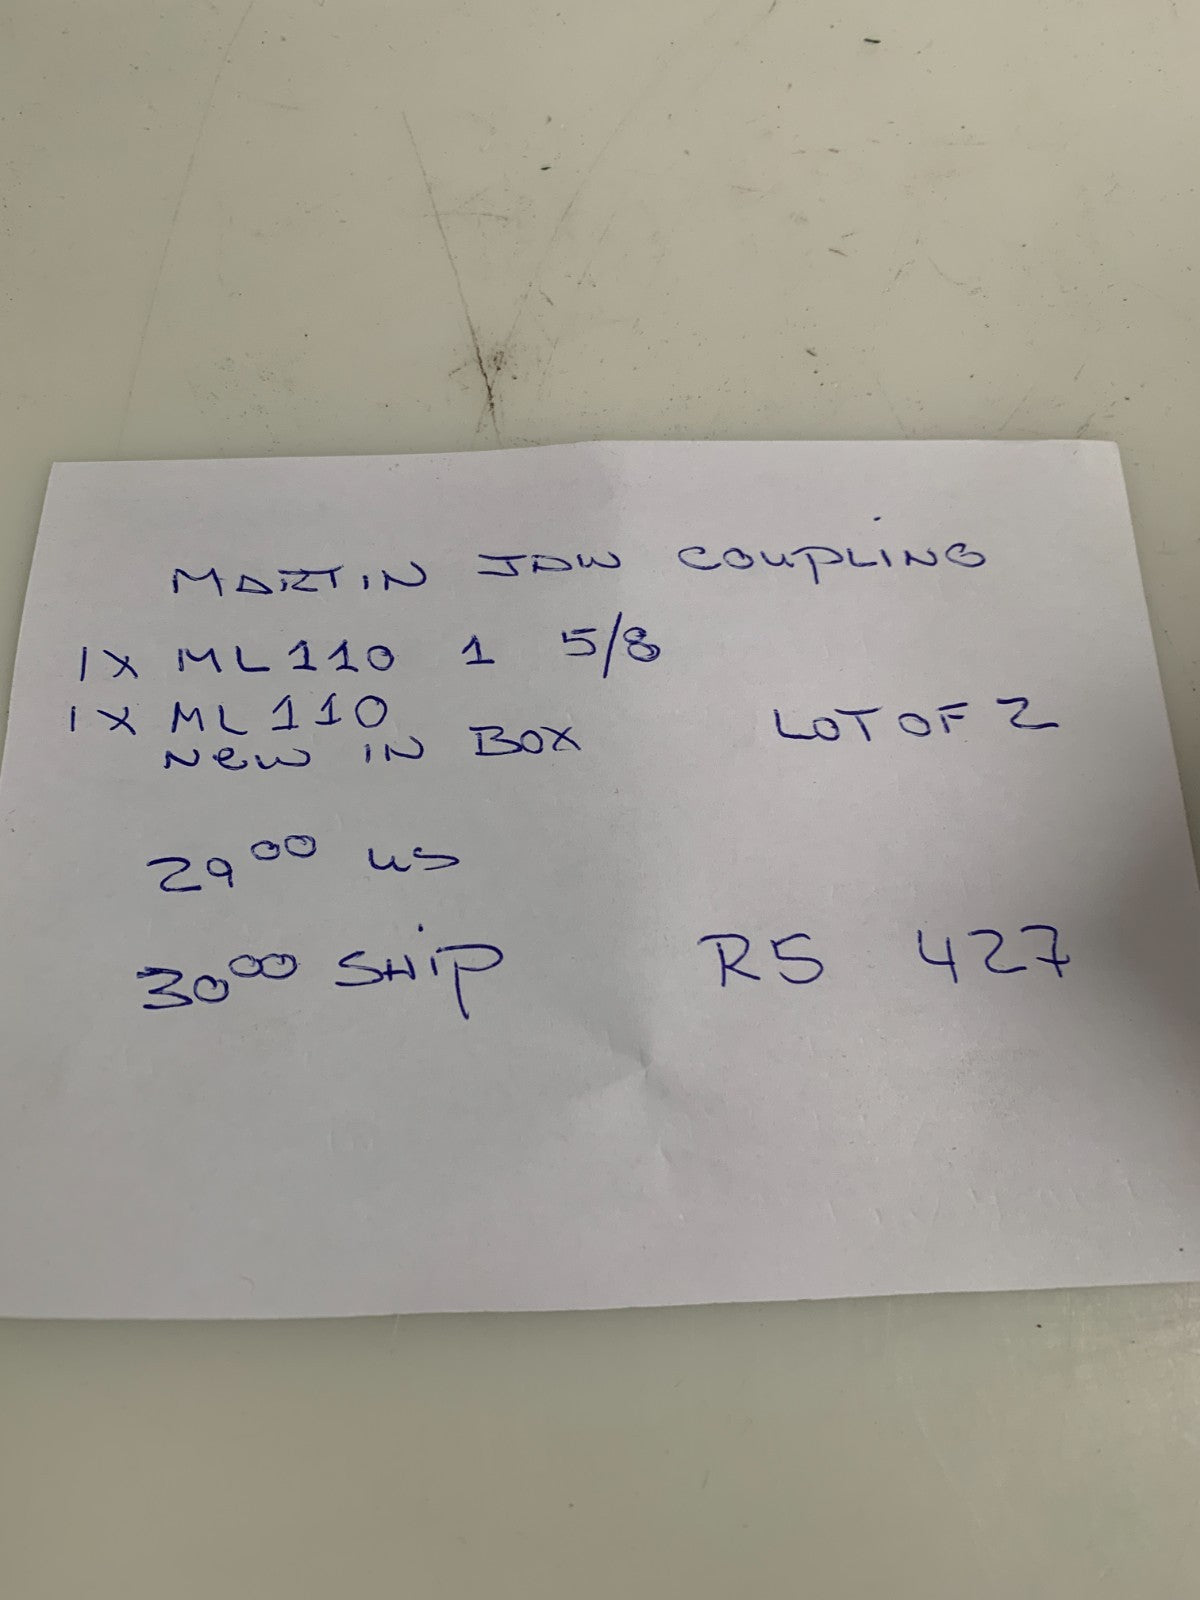 MARTIN JAW COUPLING
1X ML110 1 5/8
1X ML110
NEW IN BOX LOT OF 2
29 00 US
30 00 SHIP R5 427